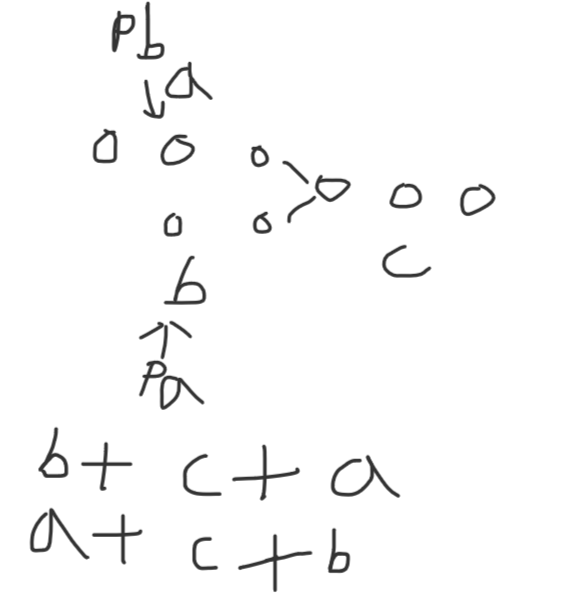 Pb
a
c
b
Pa
b+ c+a
a+ c+b